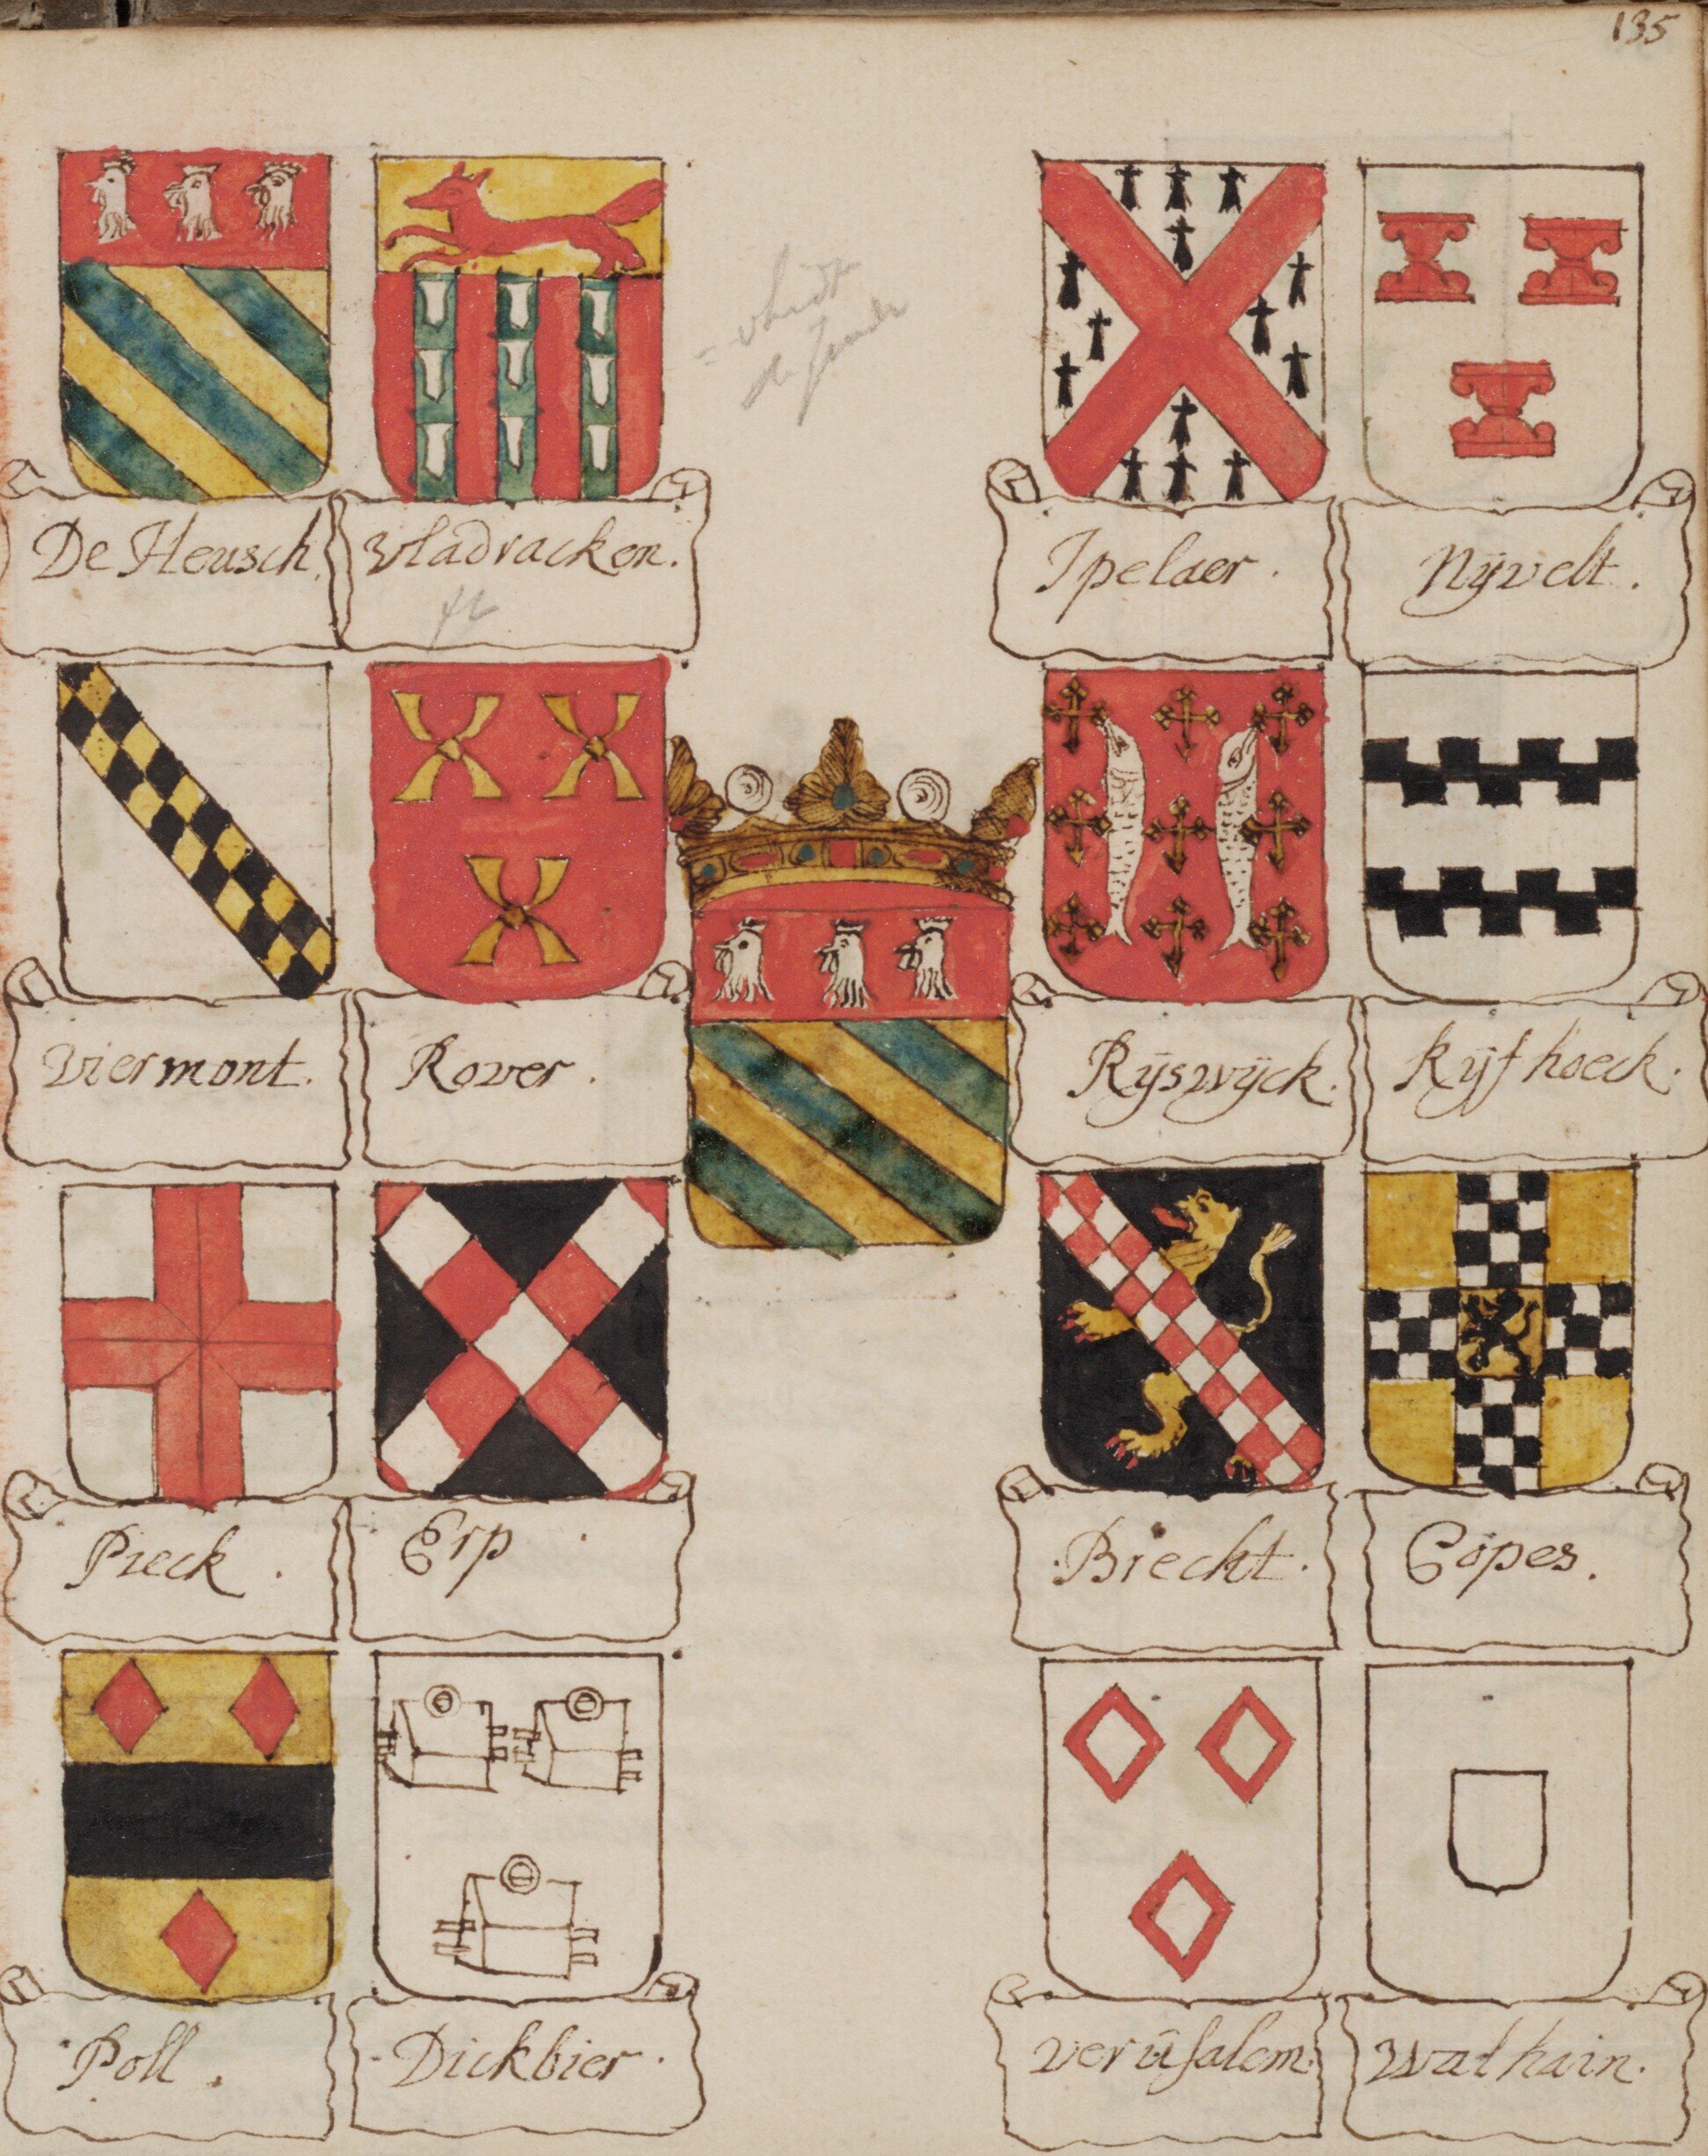 135
De Heusch.
Vladracken.
Ipelaer.
Nÿvelt.
Viermont.
Rover.
Rÿswÿck.
Kÿfhoeck.
Pieck.
Erp
Brecht.
Copes.
Poll.
Dickbier.
Verûsalem.
Walhain.